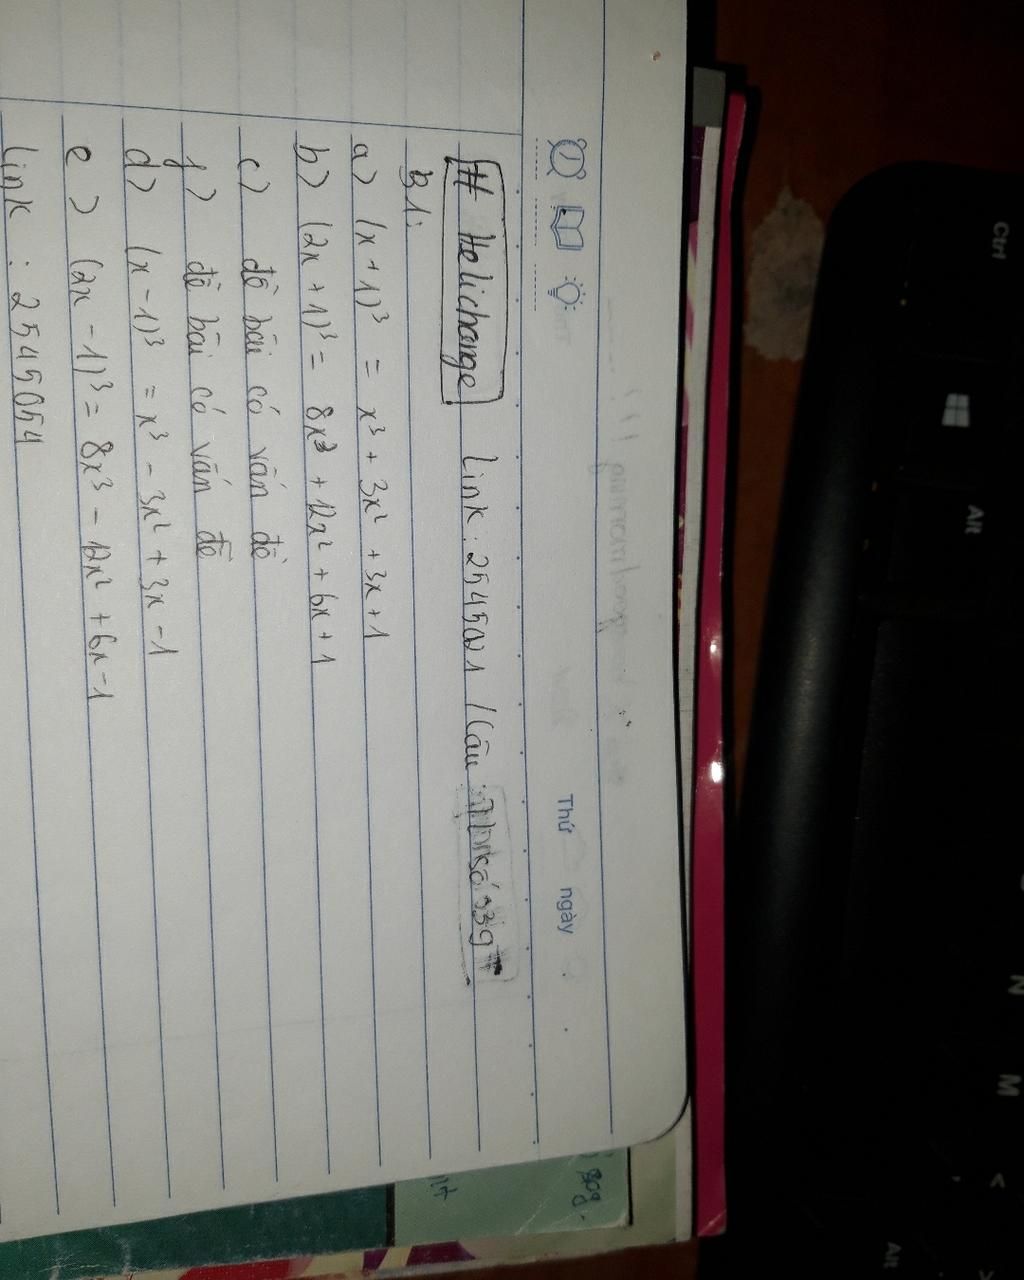 Thứ ngày
# Helichange Link: 2545021 / Câu
B1:
a> (x + 1)³ = x³ + 3x² + 3x + 1
b> (2x + 1)³ = 8x³ + 12x² + 6x + 1
c> đề bài có vấn đề
f> đề bài có vấn đề
d> (x - 1)³ = x³ - 3x² + 3x - 1
e> (2x - 1)³ = 8x³ - 12x² + 6x - 1
link : 2545054
Ctrl
Alt
N
M
<
Alt